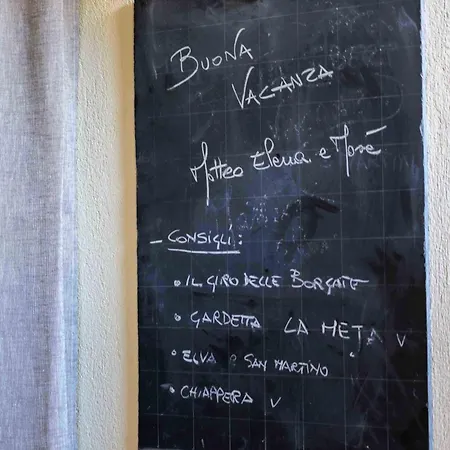 BUONA
VACANZA
Matteo Elena e Mosè
- CONSIGLI:
• IL GIRO DELLE BORGATE
• GARDETTA LA META V
• ELVA SAN MARTINO
• CHIAPPERA V